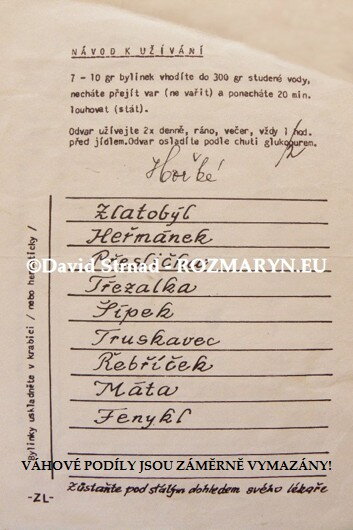 NÁVOD K UŽÍVÁNÍ
7 - 10 gr bylinek vhoďíte do 300 gr studené vody,
necháte přejít var (ne vařit) a ponecháte 20 min.
louhovat (stát).
Odvar užívejte 2x denně, ráno, večer, vždy 1/2 hod.
před jídlem.Odvar osladíte podle chuti glukopurem.
Hořké
Zlatobýl
Heřmánek
Přeslička
©David Strnad - ROZMARYN.EU
Třezalka
Šípek
Truskavec
Řebříček
Máta
Fenykl
Bylinky uskladněte v krabici / nebo hermeticky /
VÁHOVÉ PODÍLY JSOU ZÁMĚRNĚ VYMAZÁNY!
-ZL-
Zůstaňte pod stálým dohledem svého lékaře